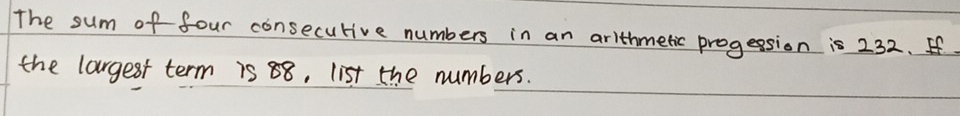 The sum of four consecutive numbers in an arithmetic progession is 232. If
the largest term is 88, list the numbers.